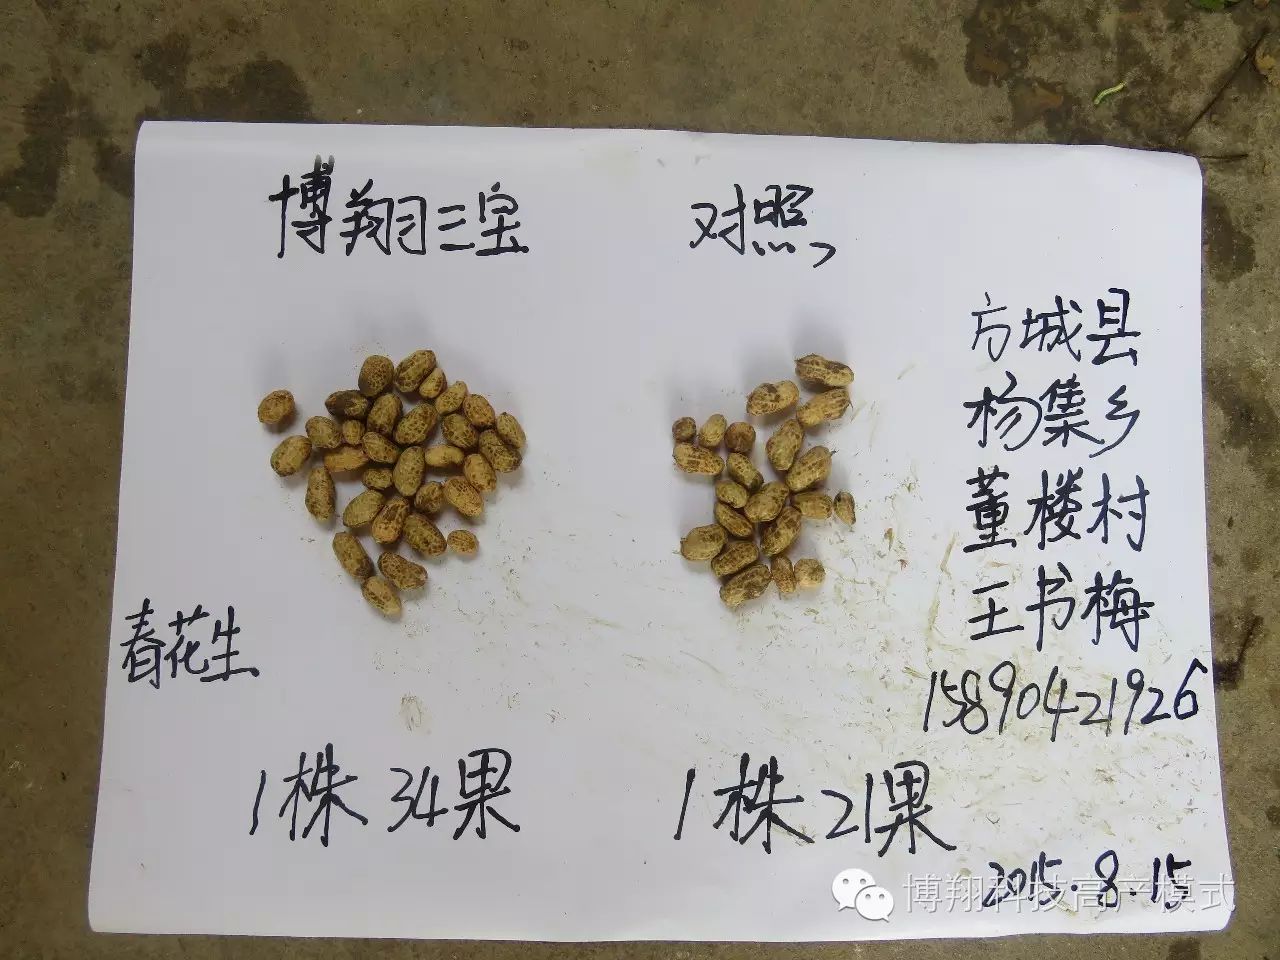 博翔三宝
对照
方城县
杨集乡
董楼村
王书梅
15890421926
春花生
1株34果
1株21果
2015.8.15
博翔科技高产模式